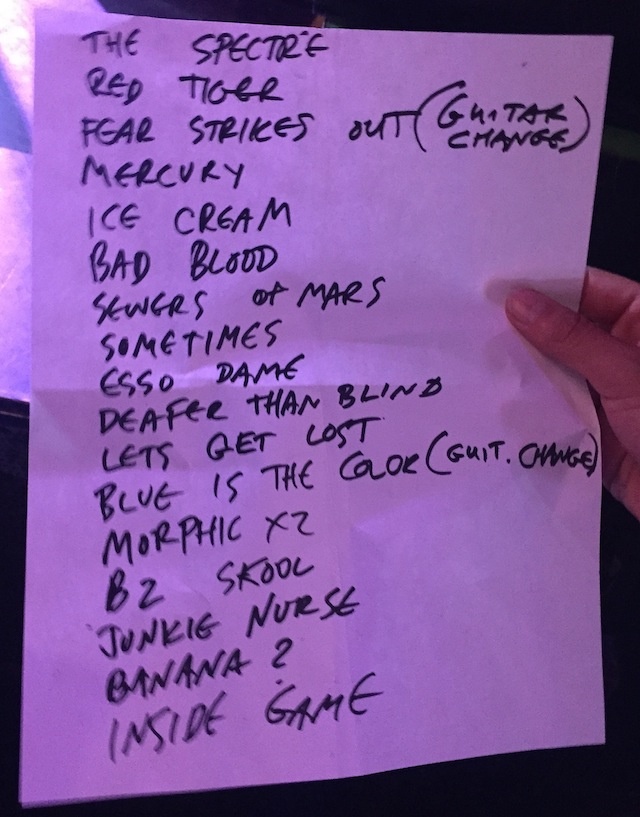 THE SPECTRE
RED TIGER
FEAR STRIKES OUT (GUITAR CHANGE)
MERCURY
ICE CREAM
BAD BLOOD
SEWERS OF MARS
SOMETIMES
ESSO DAME
DEAFER THAN BLIND
LETS GET LOST
BLUE IS THE COLOR (GUIT. CHANGE)
MORPHIC X2
B2 SKOOL
JUNKIE NURSE
BANANA ?
INSIDE GAME